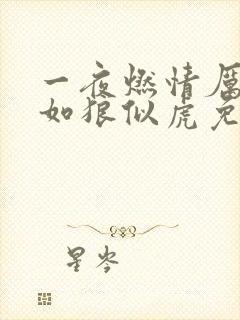 一夜燃情厉
如狼似虎免
星岑